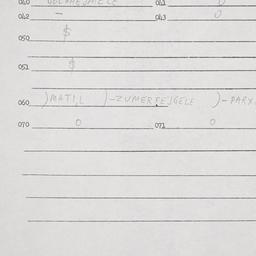 040 041 0
042 — 043 0
050 $
051 $
060 )MATI,L )-ZUMERFEJGELE )-PARY
070 0 071 0